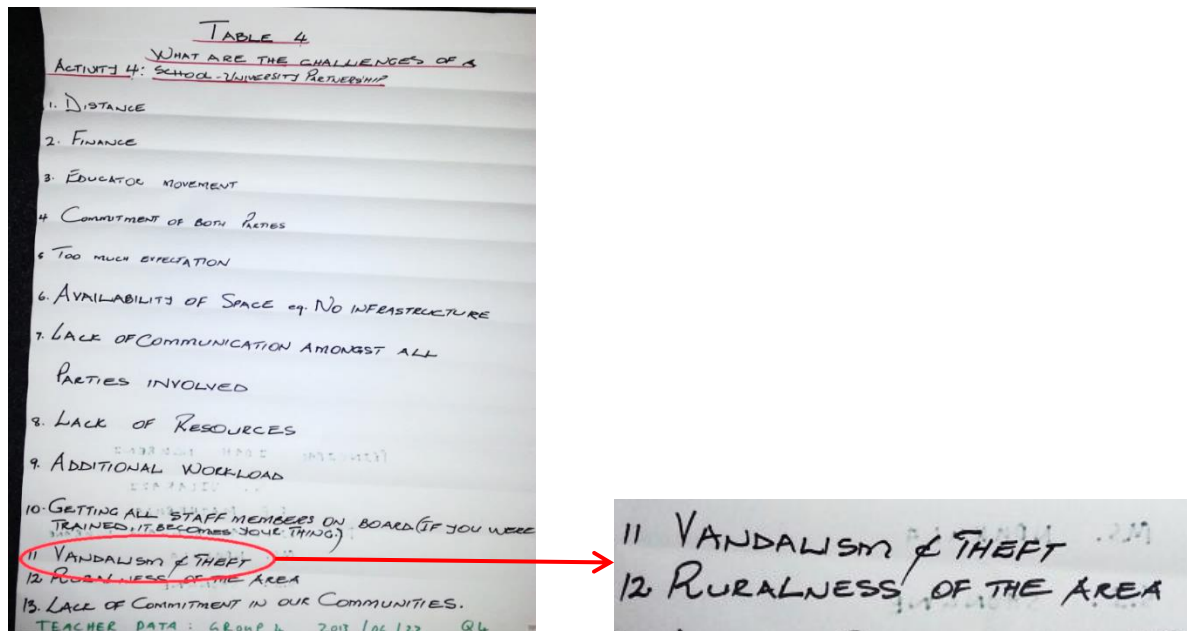 TABLE 4
WHAT ARE THE CHALLENGES OF A
ACTIVITY 4: SCHOOL-UNIVERSITY PARTNERSHIP
1. DISTANCE
2. FINANCE
3. EDUCATOR MOVEMENT
4 COMMITMENT OF BOTH PARTIES
5 TOO MUCH EXPECTATION
6. AVAILABILITY OF SPACE eg. NO INFRASTRUCTURE
7. LACK OF COMMUNICATION AMONGST ALL
PARTIES INVOLVED
8. LACK OF RESOURCES
9. ADDITIONAL WORKLOAD
10. GETTING ALL STAFF MEMBERS ON BOARD (IF YOU WERE
TRAINED, IT BECOMES YOUR THING.)
11 VANDALISM & THEFT
12 RURALNESS OF THE AREA
13. LACK OF COMMITMENT IN OUR COMMUNITIES.
TEACHER DATA: GROUP 4 2013/06/22 Q4
11 VANDALISM & THEFT
12 RURALNESS OF THE AREA